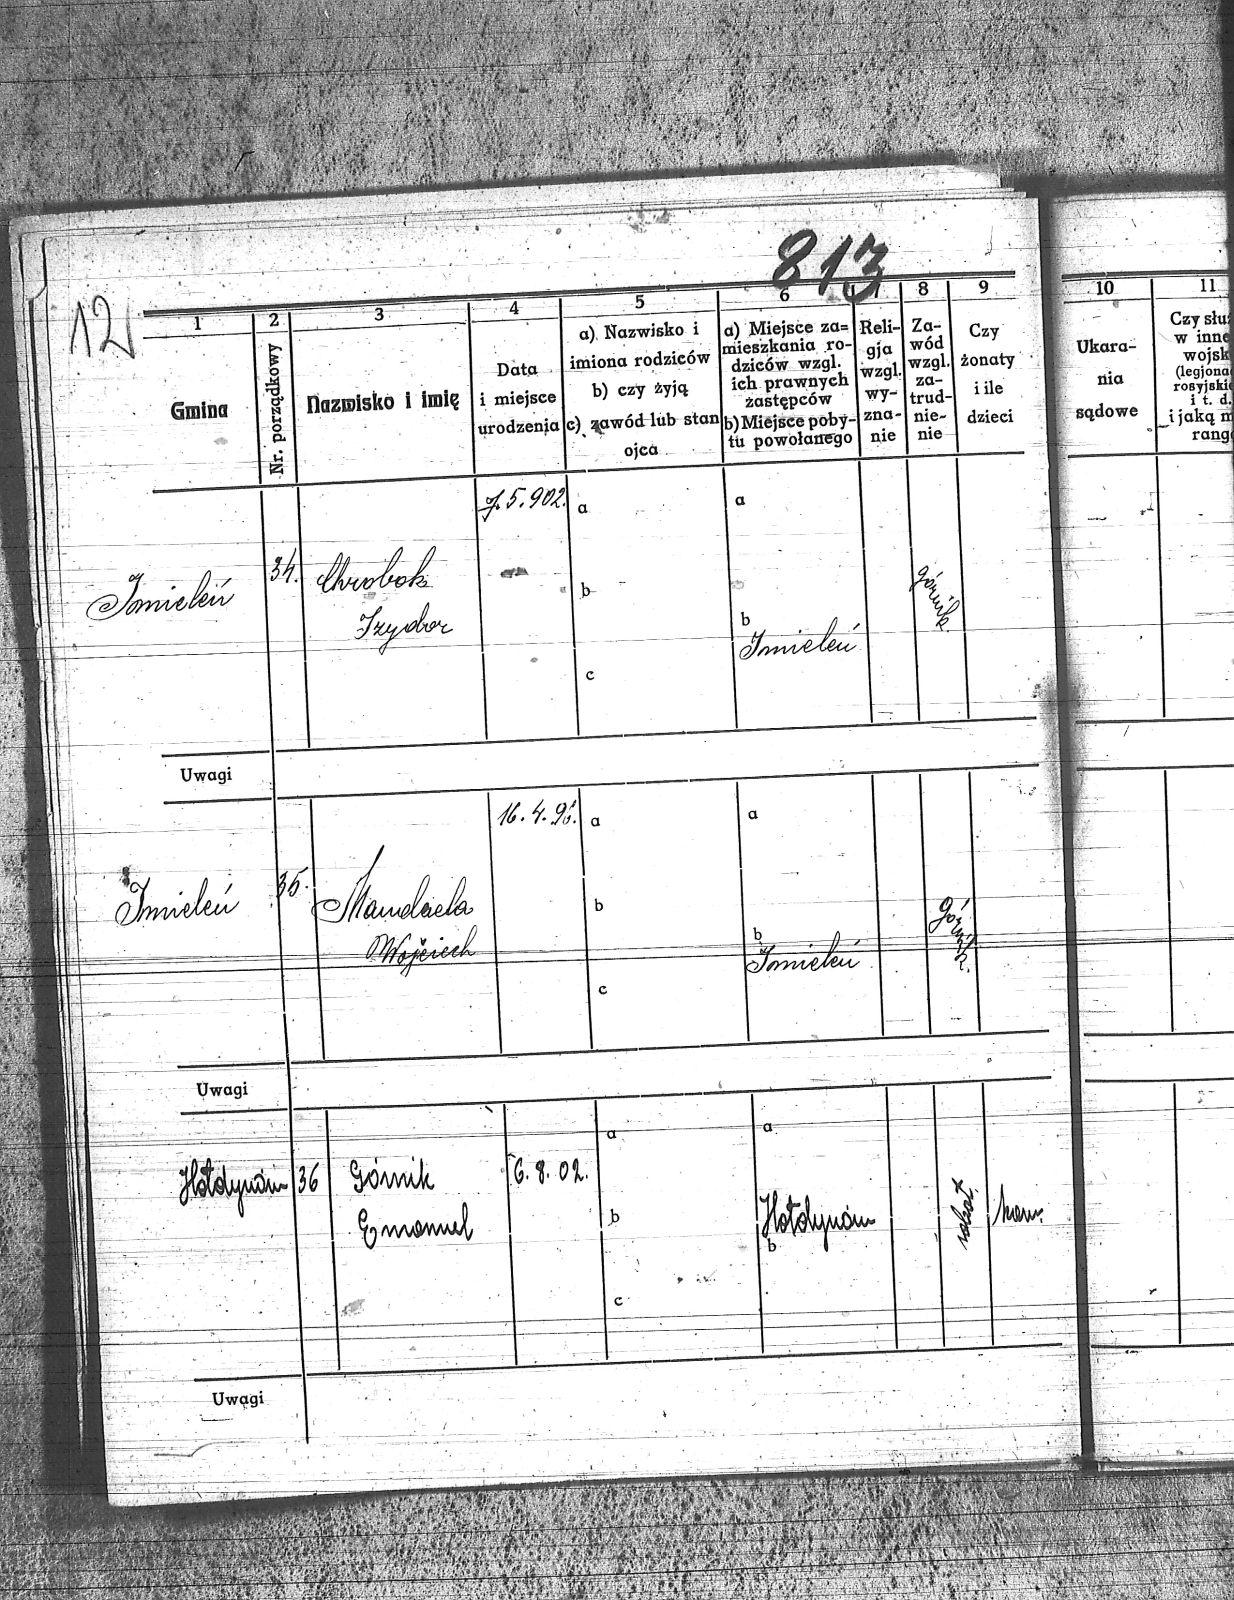 813
12
1
2
3
4
5
6
8
9
10
11
Gmina
Nr. porządkowy
Nazwisko i imię
Data
i miejsce
urodzenia
a) Nazwisko i
imiona rodziców
b) czy żyją
c) zawód lub stan
ojca
a) Miejsce za=
mieszkania ro-
dziców wzgl.
ich prawnych
zastępców
b) Miejsce poby-
tu powołanego
Reli-
gja
wzgl.
wy-
zna-
nie
Za-
wód
wzgl.
za-
trud-
nie-
nie
Czy
żonaty
i ile
dzieci
Ukara-
nia
sądowe
Czy słu
w inne
wojsk
(legjona
rosyjskie
i t. d.
i jaką m
rang
Imieleń
34.
Chrobok
Izydor
7.5.902.
a
b
c
a
b
Imieleń
górnik
Uwagi
Imieleń
35.
Mandrela
Wojciech
16.4.96.
a
b
c
a
b
Imieleń
górnik.
Uwagi
Hołdynów
36
Górnik
Emanuel
6.8.02.
a
b
c
a
Hołdynów
b
robot.
kaw.
Uwagi